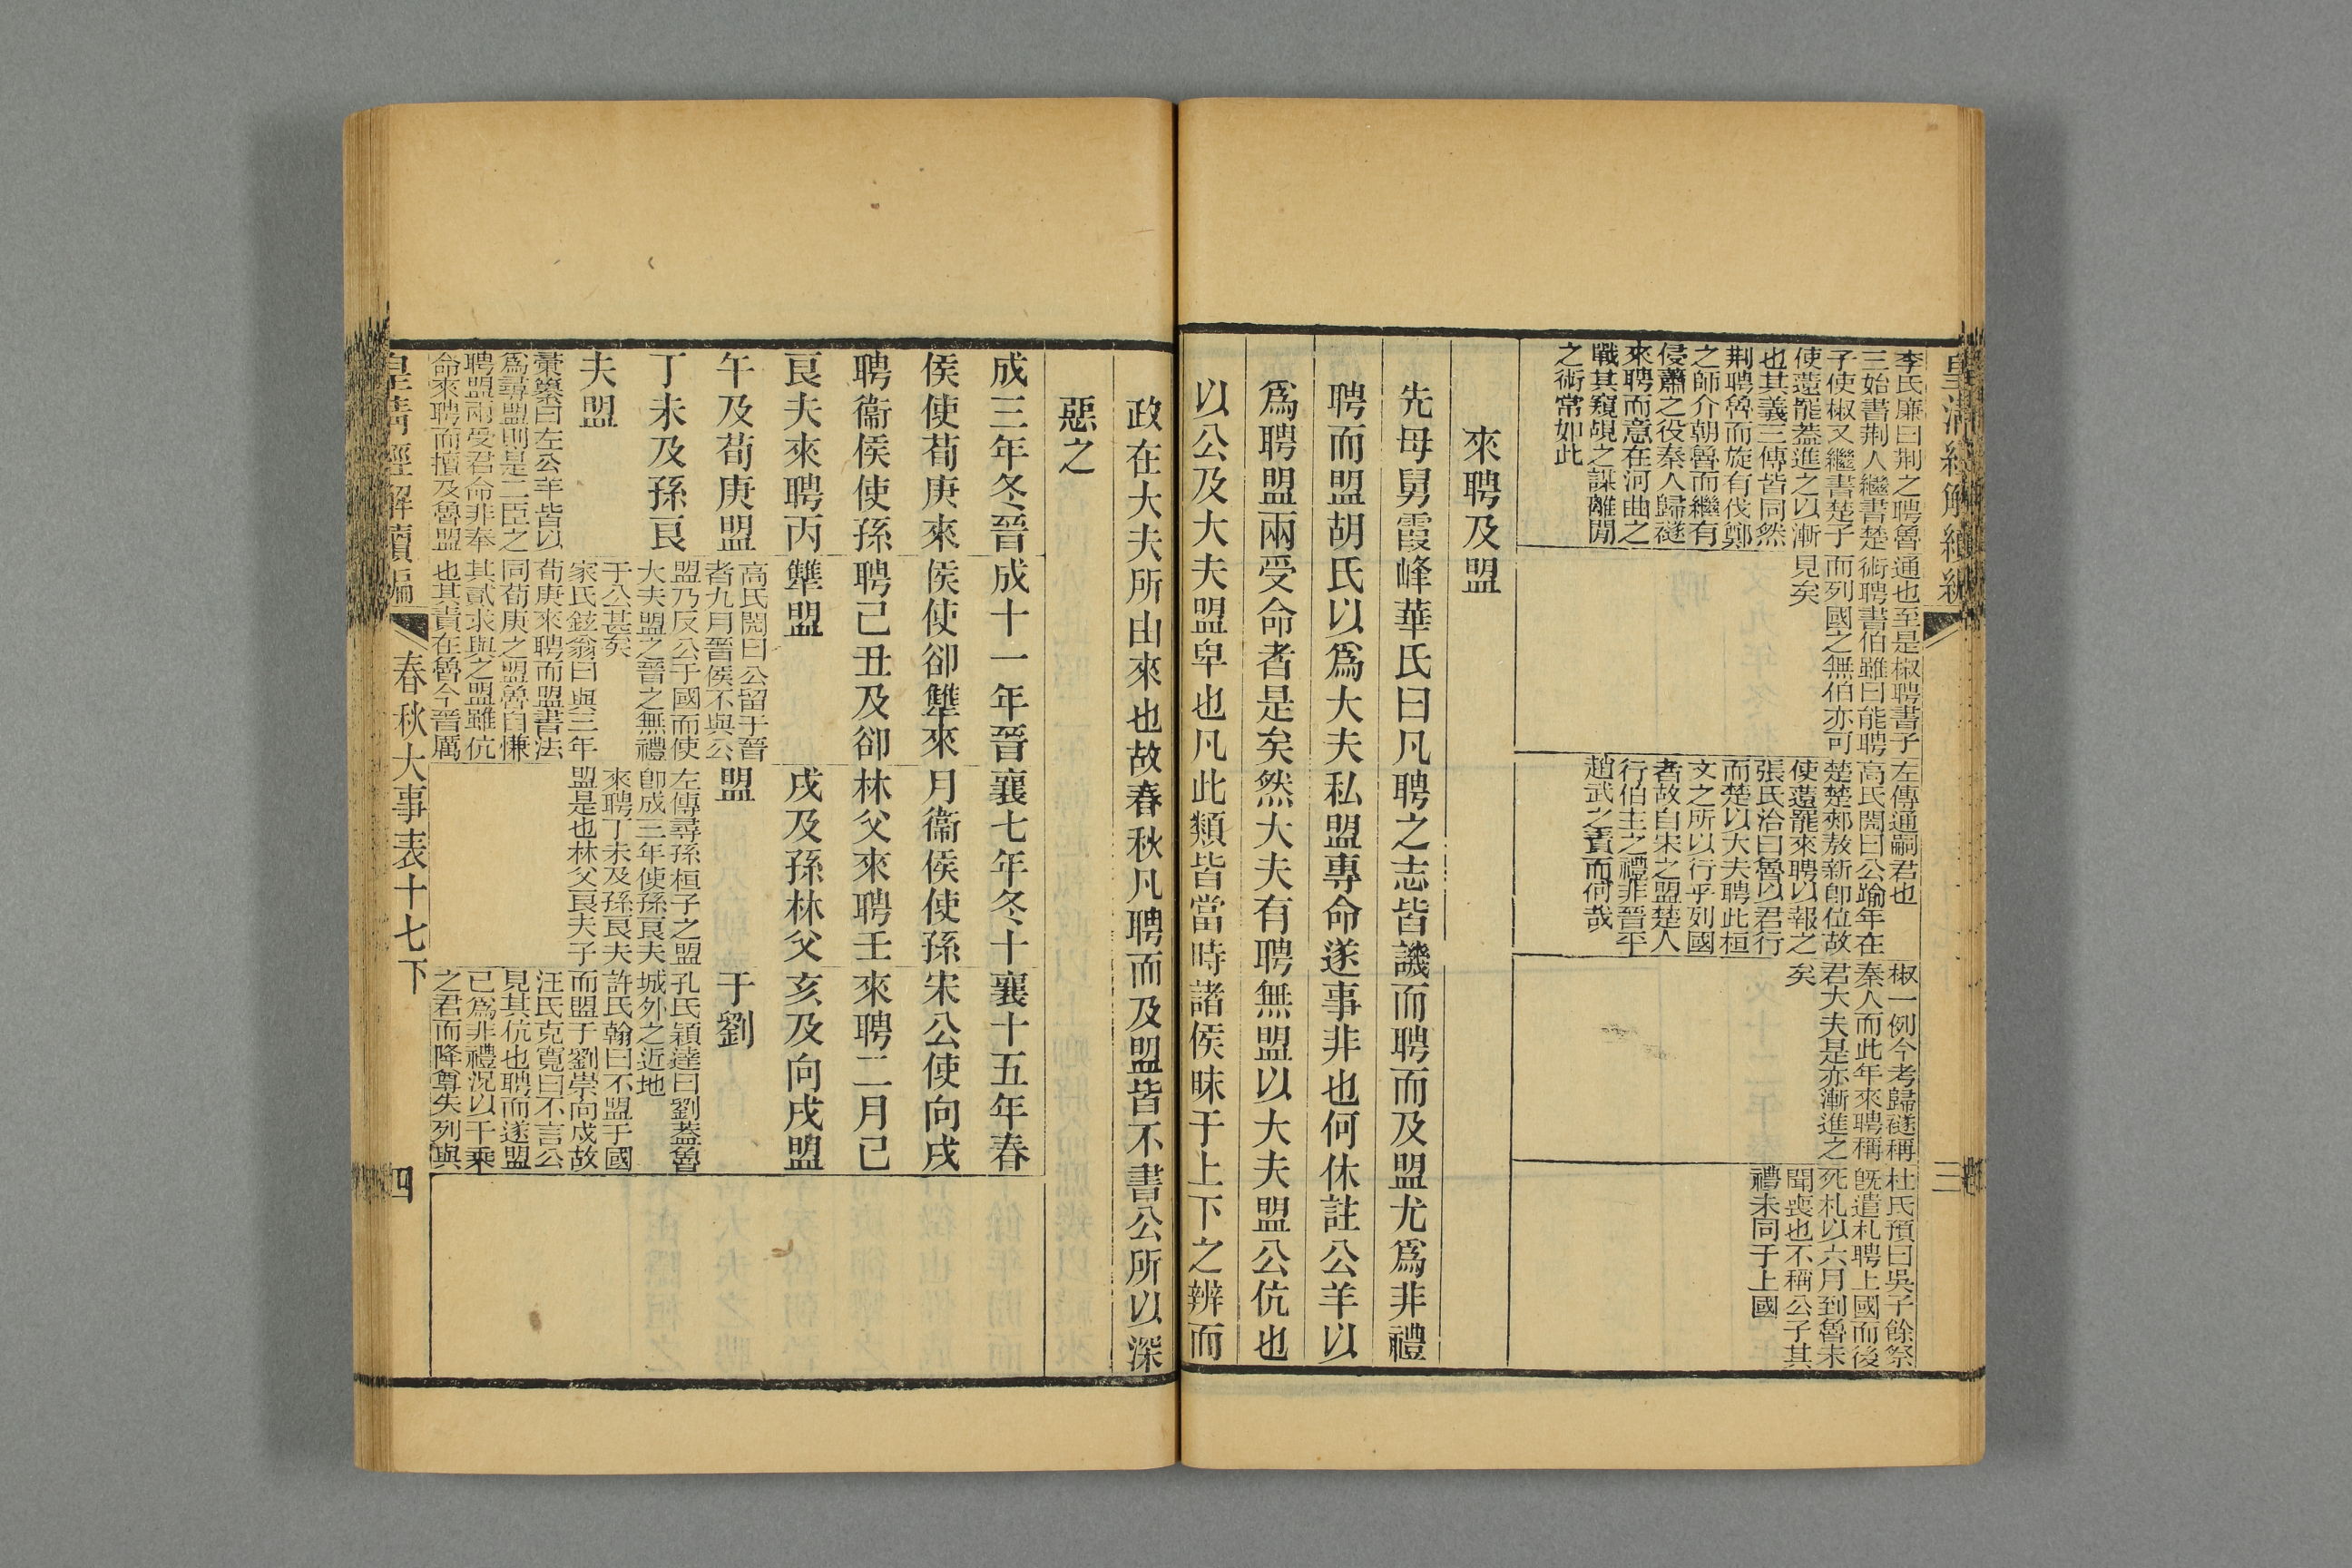 皇清經解續編
三
李氏廉曰荆之聘魯
三始書荆人繼書楚
子使椒又繼書楚子
使薳罷蓋進之以漸
也其義三傳皆同然
荆聘魯而旋有伐鄭
之師介朝魯而繼有
侵蕭之役秦人歸襚
來聘而意在河曲之
戰其窺覘之謀離閒
之術常如此
通也至是椒聘書子
術聘書伯雖曰能聘
而列國之無伯亦可
見矣
左傳通嗣君也
高氏閌曰公踰年在
楚楚郟敖新卽位故
使薳罷來聘以報之
張氏洽曰魯以君行
而楚以大夫聘此桓
文之所以行乎列國
者故自宋之盟楚人
行伯主之禮非晉平
趙武之責而何哉
椒一例今考歸襚稱
秦人而此年來聘稱
君大夫是亦漸進之
矣
杜氏預曰吳子餘祭
旣遣札聘上國而後
死札以六月到魯未
聞喪也不稱公子其
禮未同于上國
來聘及盟
先母舅霞峰華氏曰凡聘之志皆譏而聘而及盟尤爲非禮
聘而盟胡氏以爲大夫私盟專命遂事非也何休註公羊以
爲聘盟兩受命者是矣然大夫有聘無盟以大夫盟公伉也
以公及大夫盟卑也凡此類皆當時諸侯昧于上下之辨而
政在大夫所由來也故春秋凡聘而及盟皆不書公所以深
惡之
成三年冬晉
侯使荀庚來
聘衞侯使孫
良夫來聘丙
午及荀庚盟
丁未及孫良
夫盟
彙纂曰左公羊皆以
爲尋盟則是二臣之
聘盟兩受君命非奉
命來聘而擅及魯盟
成十一年晉
侯使郤犨來
聘己丑及郤
犨盟
高氏閌曰公留于晉
者九月晉侯不與公
盟乃反公于國而使
大夫盟之晉之無禮
于公甚矣
家氏鉉翁曰與三年
荀庚來聘而盟書法
同荀庚之盟魯自慊
其貳求與之盟雖伉
也其責在魯今晉厲
襄七年冬十
月衞侯使孫
林父來聘壬
戌及孫林父
盟
左傳尋孫桓子之盟
卽成三年使孫良夫
來聘丁未及孫良夫
盟是也林父良夫子
襄十五年春
宋公使向戌
來聘二月己
亥及向戌盟
于劉
孔氏穎達曰劉蓋魯
城外之近地
許氏翰曰不盟于國
而盟于劉崇向戌故
汪氏克寬曰不言公
見其伉也聘而遂盟
已爲非禮況以千乘
之君而降尊失列與
皇清經解續編
春秋大事表十七下
四